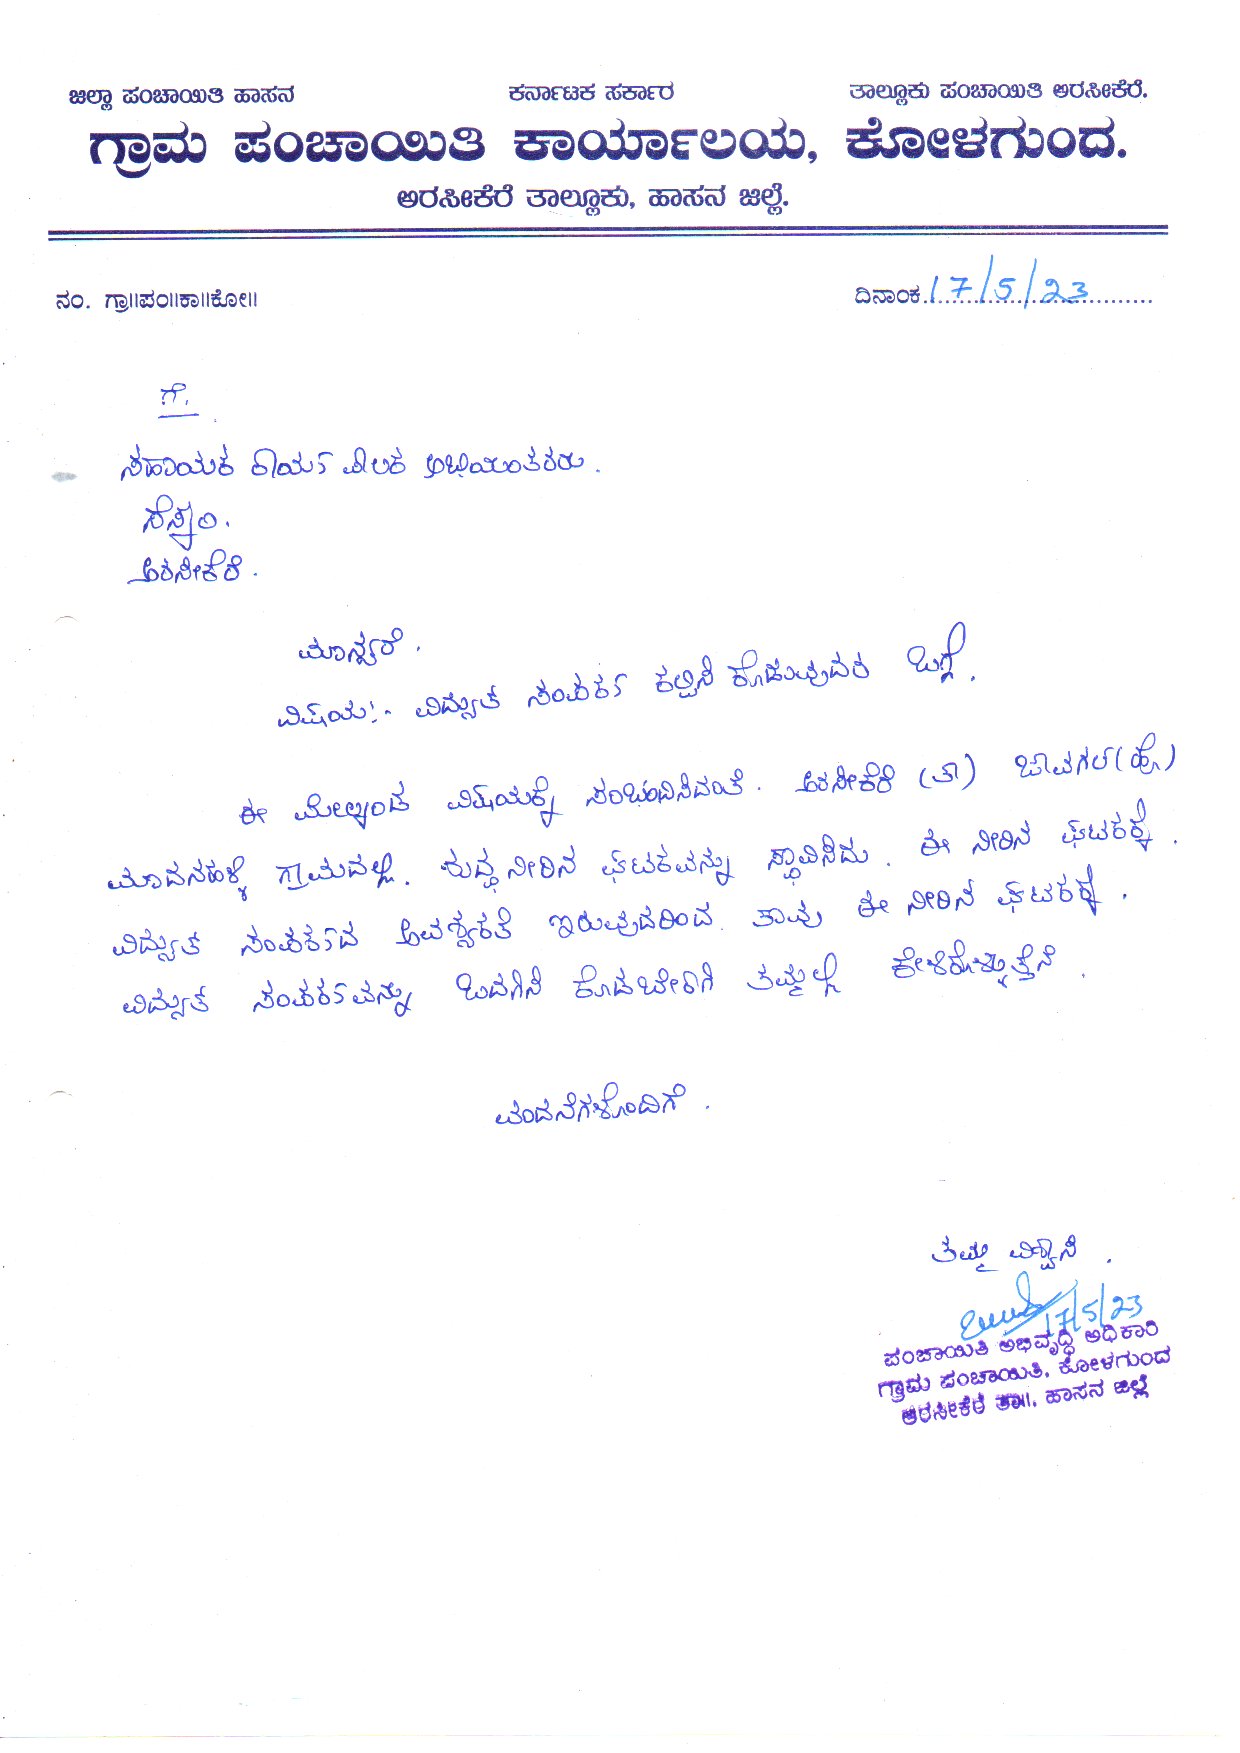 ಜಿಲ್ಲಾ ಪಂಚಾಯಿತಿ ಹಾಸನ ಕರ್ನಾಟಕ ಸರ್ಕಾರ ತಾಲ್ಲೂಕು ಪಂಚಾಯಿತಿ ಅರಸೀಕೆರೆ.
ಗ್ರಾಮ ಪಂಚಾಯಿತಿ ಕಾರ್ಯಾಲಯ, ಕೋಳಗುಂದ.
ಅರಸೀಕೆರೆ ತಾಲ್ಲೂಕು, ಹಾಸನ ಜಿಲ್ಲೆ.
ನಂ. ಗ್ರಾ॥ಪಂ॥ಕಾ॥ಕೋ॥ ದಿನಾಂಕ 17/5/23
ಗೆ.
ಸಹಾಯಕ ಕಾರ್ಯ ಪಾಲಕ ಅಭಿಯಂತರರು.
ಸೆಸ್ಕಂ.
ಅರಸೀಕೆರೆ.
ಮಾನ್ಯರೆ.
ವಿಷ್ಯಯ:- ವಿದ್ಯುತ ಸಂಪರ್ಕ ಕಲ್ಪಿಸಿ ಕೊಡುವುದರ ಬಗ್ಗೆ.
ಈ ಮೇಲ್ಕಂಡ ವಿಷ್ಯಯಕ್ಕೆ ಸಂಬಂದಿಸಿದಂತೆ. ಅರಸೀಕೆರೆ (ತಾ) ಜಾವಗಲ್ (ಹೋ)
ಮಾದನಹಳ್ಳಿ ಗ್ರಾಮದಲ್ಲಿ. ಶುದ್ಧ ನೀರಿನ ಘಟಕವನ್ನು ಸ್ಥಾಪಿಸಿದು. ಈ ನೀರಿನ ಘಟಕಕ್ಕೆ.
ವಿದ್ಯುತ ಸಂಪರ್ಕದ ಅವಶ್ಯಕತೆ ಇರುವುದರಿಂದ ತಾವು ಈ ನೀರಿನ ಘಟಕಕ್ಕೆ.
ವಿದ್ಯುತ ಸಂಪರ್ಕವನ್ನು ಒದಗಿಸಿ ಕೊಡಬೇಕಾಗಿ ತಮ್ಮಲ್ಲಿ ಕೇಳಿಕೊಳ್ಳುತ್ತೆನೆ.
ವಂದನೆಗಳೊಂದಿಗೆ.
ತಮ್ಮ ವಿಶ್ವಾಸಿ.
17/5/23
ಪಂಚಾಯಿತಿ ಅಭಿವೃದ್ಧಿ ಅಧಿಕಾರಿ
ಗ್ರಾಮ ಪಂಚಾಯಿತಿ, ಕೋಳಗುಂದ
ಅರಸೀಕೆರೆ ತಾ॥, ಹಾಸನ ಜಿಲ್ಲೆ